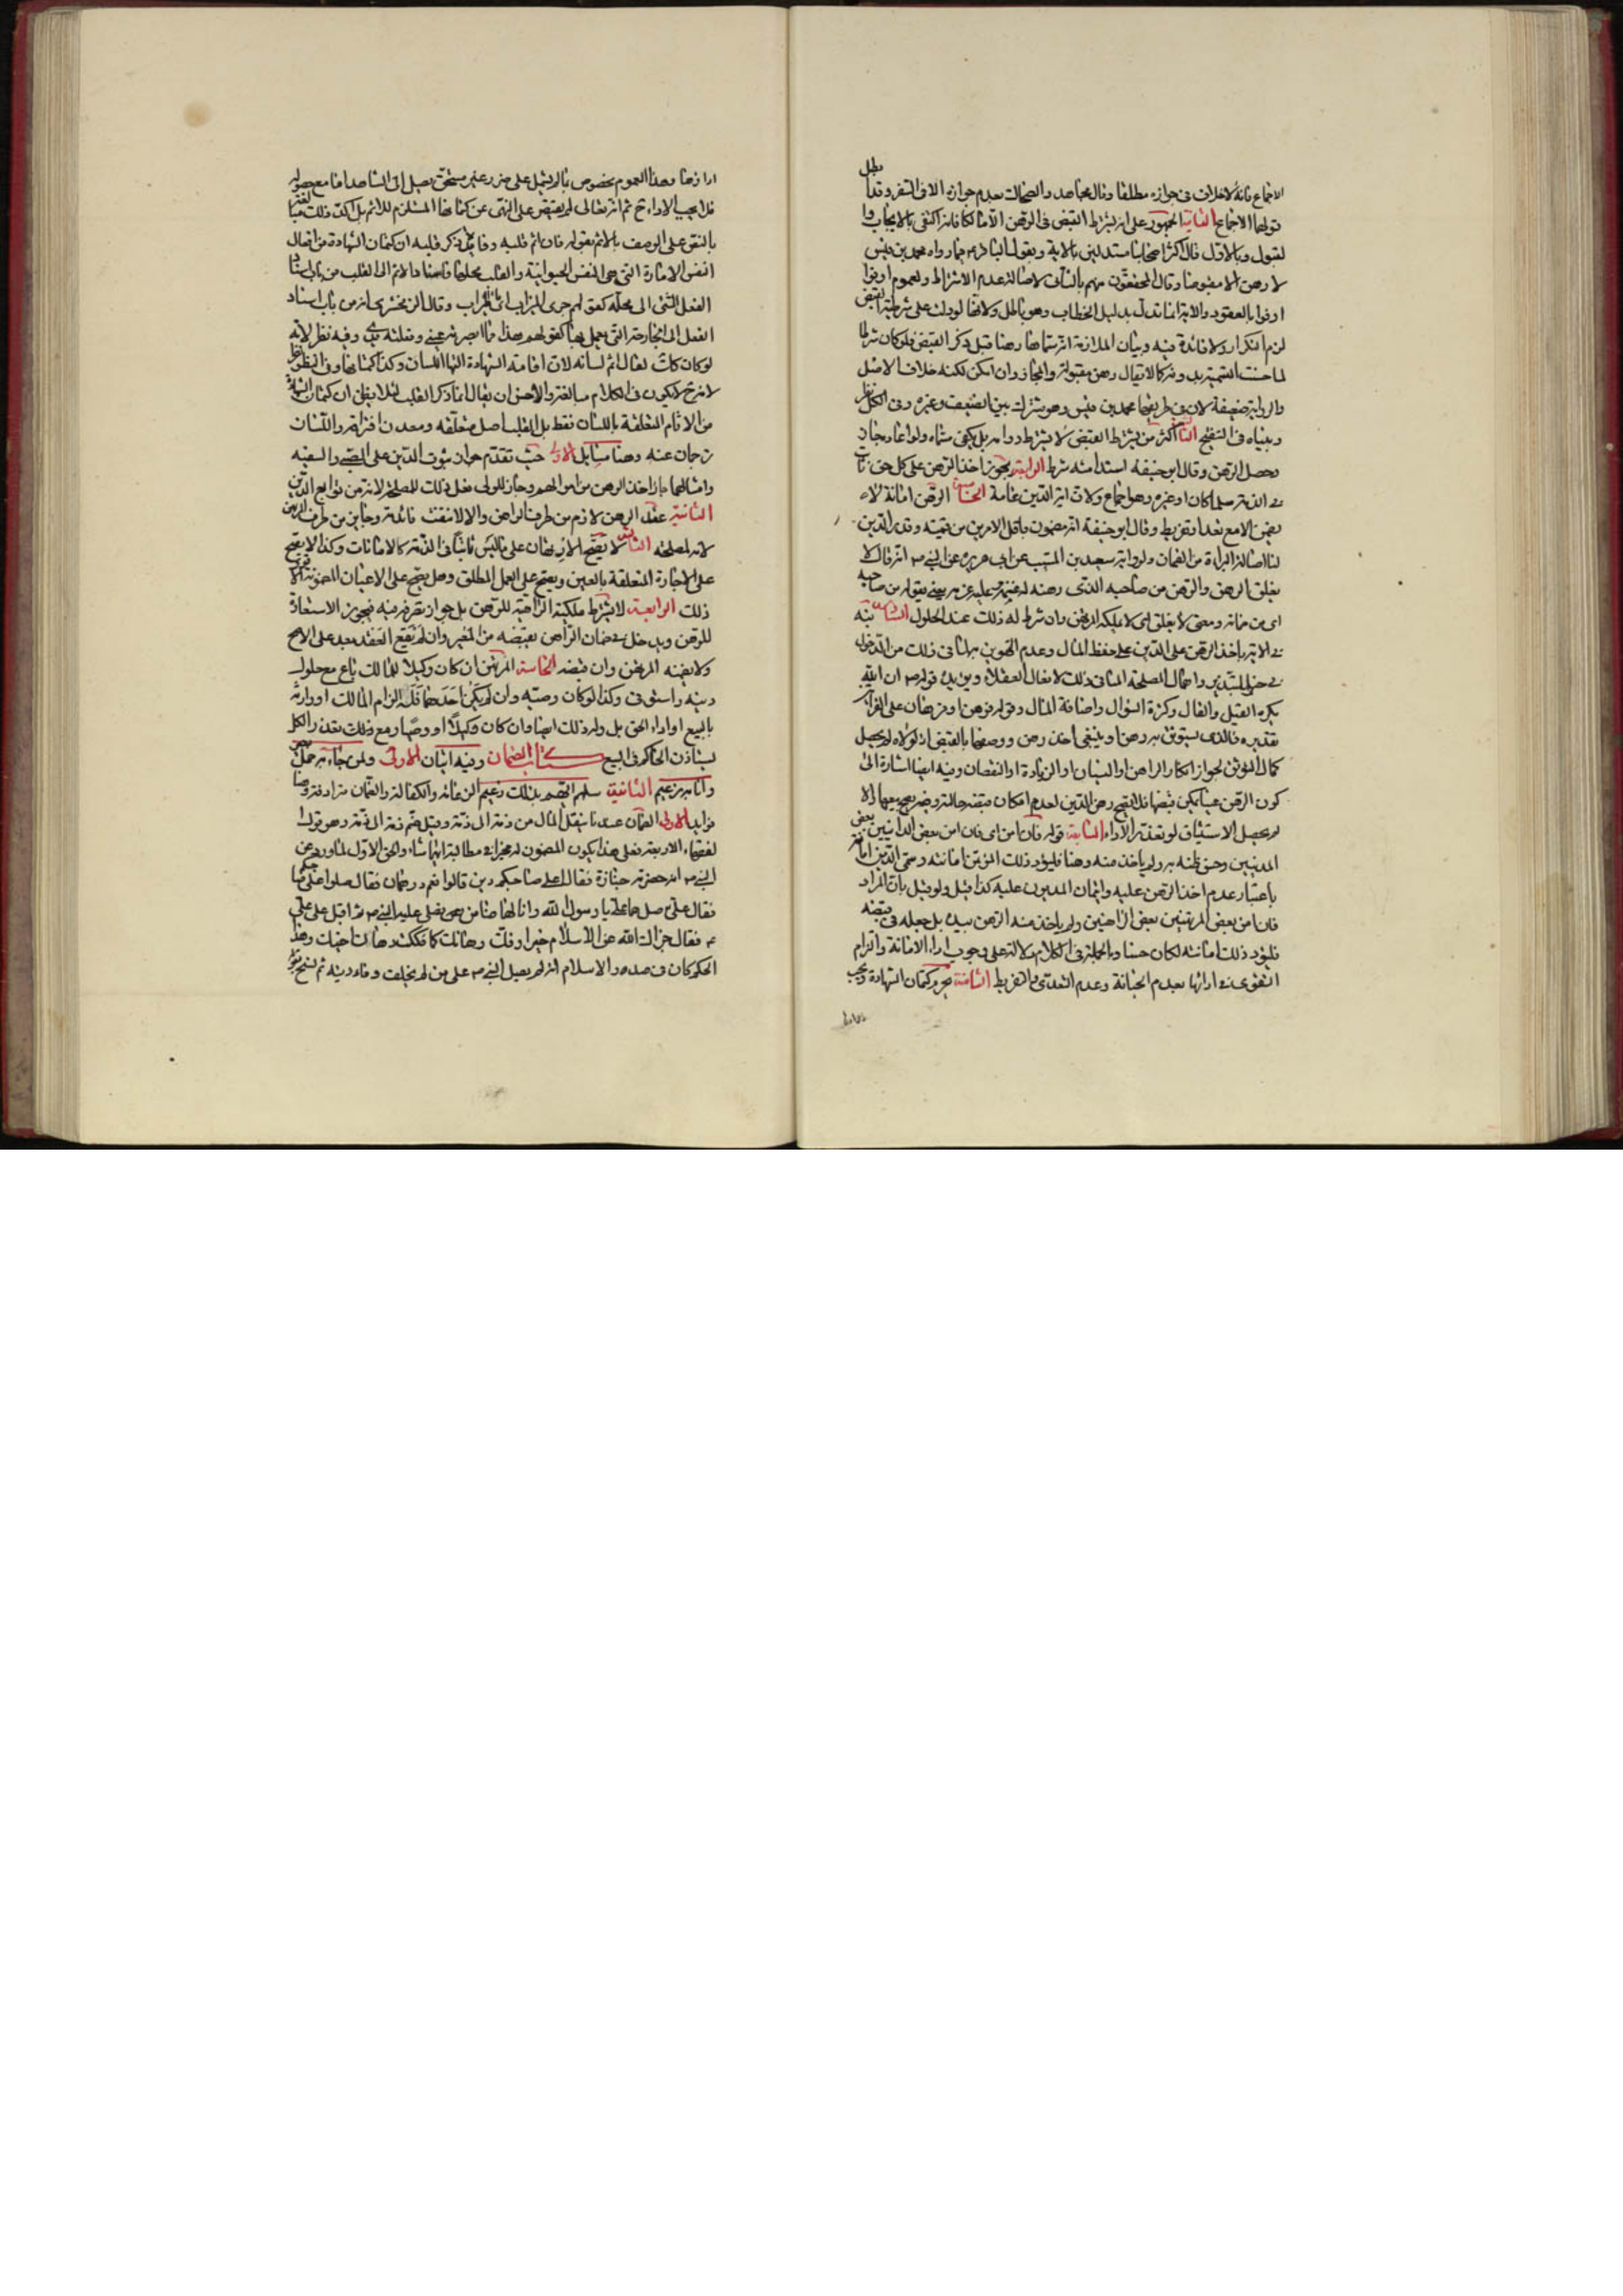 الاجماع فانه لا خلاف في جوازه مطلقا وقال مجاهد والضحاك بعدم جوازه الا في السفر وقد
بطل
قولهما الاجماع الثانية الجمهور على انه يشترط القبض في الرهن الا مالكا فانه اكتفى بالايجاب وا
لقبول وبالاول قال اكثر اصحابنا مستدلين بالاية وبقول الباقر ع فيما رواه محمد بن قيس
لا رهن الا مقبوضا وقال المحققون منهم بالثاني لاصالة عدم الاشتراط ولعموم اوفوا
اوفوا بالعقود والاية انما تدل بدليل الخطاب وهو باطل ولانها لو دلت على شرطية القبض
لزم التكرار ولا فائدة فيه وبيان الملازمة انه سماها رهنا قبل ذكر القبض فلو كان شرطا
لما حسنت التسمية بدونه كالا يقال رهن مقبولة والمجاز وان امكن لكنه خلاف الاصل
والرواية ضعيفة لان في طريقها محمد بن قيس وهو مشترك بين الضعيف وغيره وفي الكل نظر
وبيناه في التنقيح الثالثة اكثر من يشترط القبض لا يشترط دوامه بل يكفي مسماه ولو اعاره جاز
وحصل الرهن وقال ابو حنيفة استدامته شرط الرابعة يجوز اخذ الرهن على كل حق ثابت
في الذمة سلما كان او غيره وهو اجماع ولان اية الدين عامة الخامسة الرهن امانة لا
يضمن الا مع تعد او تفريط وقال ابو حنيفة انه مضمون باقل الامرين من قيمته وقدر الدين
لنا اصالة البراءة من الضمان ولرواية سعيد بن المسيب عن ابي هريرة عن النبي ص انه قال لا
يغلق الرهن والرهن من صاحبه الذي رهنه له غنمه وعليه غرمه يعني بقوله من صاحبه
اي من ضمانه ومعنى لا يغلق اي لا يملكه المرتهن وان شرط له ذلك عند الحلول السادسة نبه
في الاية باخذ الرهن على الدين على حفظ المال وعدم التهوين به لما في ذلك من الدخول
في حيز المبذرين واهمال المصلحة المنافي ذلك لافعال العقلاء ويؤيده قوله ص ان الله
يكره القيل والقال وكثرة السؤال واضاعة المال وقوله فرهن او فرهان على القراءتين
تقديره فالذي يستوثق به رهن او ينبغي اخذ رهن ووصفها بالقبض اذ لولاه لم يحصل
كمال التوثق لجواز انكار الراهن او النسيان او الزيادة او النقصان وفيه ايضا اشارة الى
كون الرهن عينا يمكن قبضها فلا يصح رهن الدين لعدم امكان قبضه حالة وضع يده عليها والا
لم يحصل الاستيثاق لو تعذر الاداء السابعة قوله فان امن اي فان امن بعض الدائنين بعض
المدينين وحسن ظنه به ولم ياخذ منه رهنا فليؤد ذلك المؤتمن امانته وسمى الدين امانة
باعتبار عدم اخذ الرهن عليه وائتمان المديون عليه كذا قيل ولو قيل بان المراد
فان امن بعض المرتهنين بعض الراهنين ولم ياخذ منه الرهن بيده بل جعله في قبضه
فليؤد ذلك امانته لكان حسنا وبالجملة في الكلام دلالة على وجوب اداء الامانة والتزام
التقوى في ادائها بعدم الخيانة وعدم التعدي والتفريط الثامنة تحريم كتمان الشهادة ويجب
اداؤها
اداؤها وهذا العموم مخصوص بما لم يشتمل على ضرر غير مستحق يصل الى الشاهد اما مع حصوله
فلا يجب الاداء ح ثم انه تعالى لم يقتصر على النهي عن كتمانها المستلزم للاثم بل اكد ذلك
بالنص على الوصف بالاثم بقوله فانه اثم قلبه وفائدة ذكر قلبه ان كتمان الشهادة من افعال
النفس الامارة التي هي النفس الحيوانية والقلب محلها فاسناد الاثم الى القلب من باب اسناد
الفعل الشيء الى محله كقولهم جرى الميزاب اي ماء الميزاب وقال الزمخشري انه من باب اسناد
الفعل الى الجارحة التي يعمل بها كقولهم هذا مما ابصرته عيني وفعلته يدي وفيه نظر لانه
لو كان كذلك لقال اثم لسانه لان اقامة الشهادة الة اللسان وكذا كتمانها
لانه ح لا يكون في الكلام مبالغة والاحسن ان يقال انما ذكر القلب لئلا يظن ان كتمان الشهادة
من الاثام المتعلقة باللسان فقط بل القلب اصل متعلقه ومعدن اقترافه واللسان
ترجمان عنه وهنا مسائل الاولى حيث تقدم جواز ثبوت الدين على الصبي والسفيه
وامثالهما جاز اخذ الرهن من اموالهم وجاز للولي فعل ذلك للمصلحة لانه من توابع الدين
الثانية عقد الرهن لازم من طرف الراهن والا لانتفت فائدته وجايز من طرف المرتهن
لانه لمصلحته الثالثة لا يصح الارتهان على ما ليس ثابتا في الذمة كالامانات وكذا لا يصح
على الاجارة المتعلقة بالعين ويصح على العمل المطلق وهل يصح على الاعيان المضمونة
ذلك الرابعة لا يشترط ملكية الراهن للرهن بل جواز تصرفه فيه فيجوز الاستعارة
للرهن ويدخل في ضمان الراهن بقبضه من المعير وان لم يقع العقد بعد على الاصح
ولا يضمنه المرتهن وان قبضه الخامسة المرتهن ان كان وكيلا للمالك باع مع حلول
دينه واستوفى وكذا لو كان وصيه وان لم يكن احدهما فله الزام المالك او وارثه
بالبيع او اداء الحق بل وله ذلك ايضا وان كان وكيلا او وصيا ومع ذلك تعذر الكل
يستاذن الحاكم في البيع كتاب الضمان وفيه ايتان الاولى ولمن جاء به حمل بعير
وانا به زعيم الثانية سلهم ايهم بذلك زعيم الزعامة والكفالة والضمان مترادفة وهنا
فوايد الاولى الضمان عندنا ينقل المال من ذمة الى ذمة وقيل ضم ذمة الى ذمة وهو قول ا
لفقهاء الاربعة فعلى هذا يكون المضمون له مخيرا في مطالبة ايهما شاء والحق الاول لما ورد عن
النبي ص انه حضرته جنازة فقال اعلى صاحبكم دين قالوا نعم درهمان فقال صلوا على صاحبكم
فقال علي صل عليه يا رسول الله وانا لهما ضامن فصلى عليه النبي ص ثم اقبل على علي
ع فقال جزاك الله عن الاسلام خيرا وفك رهانك كما فككت رهان اخيك وهذا
الحكم كان في صدر الاسلام انه لم يصل النبي ص على من لم يخلف وفاء دينه ثم نسخ بقوله